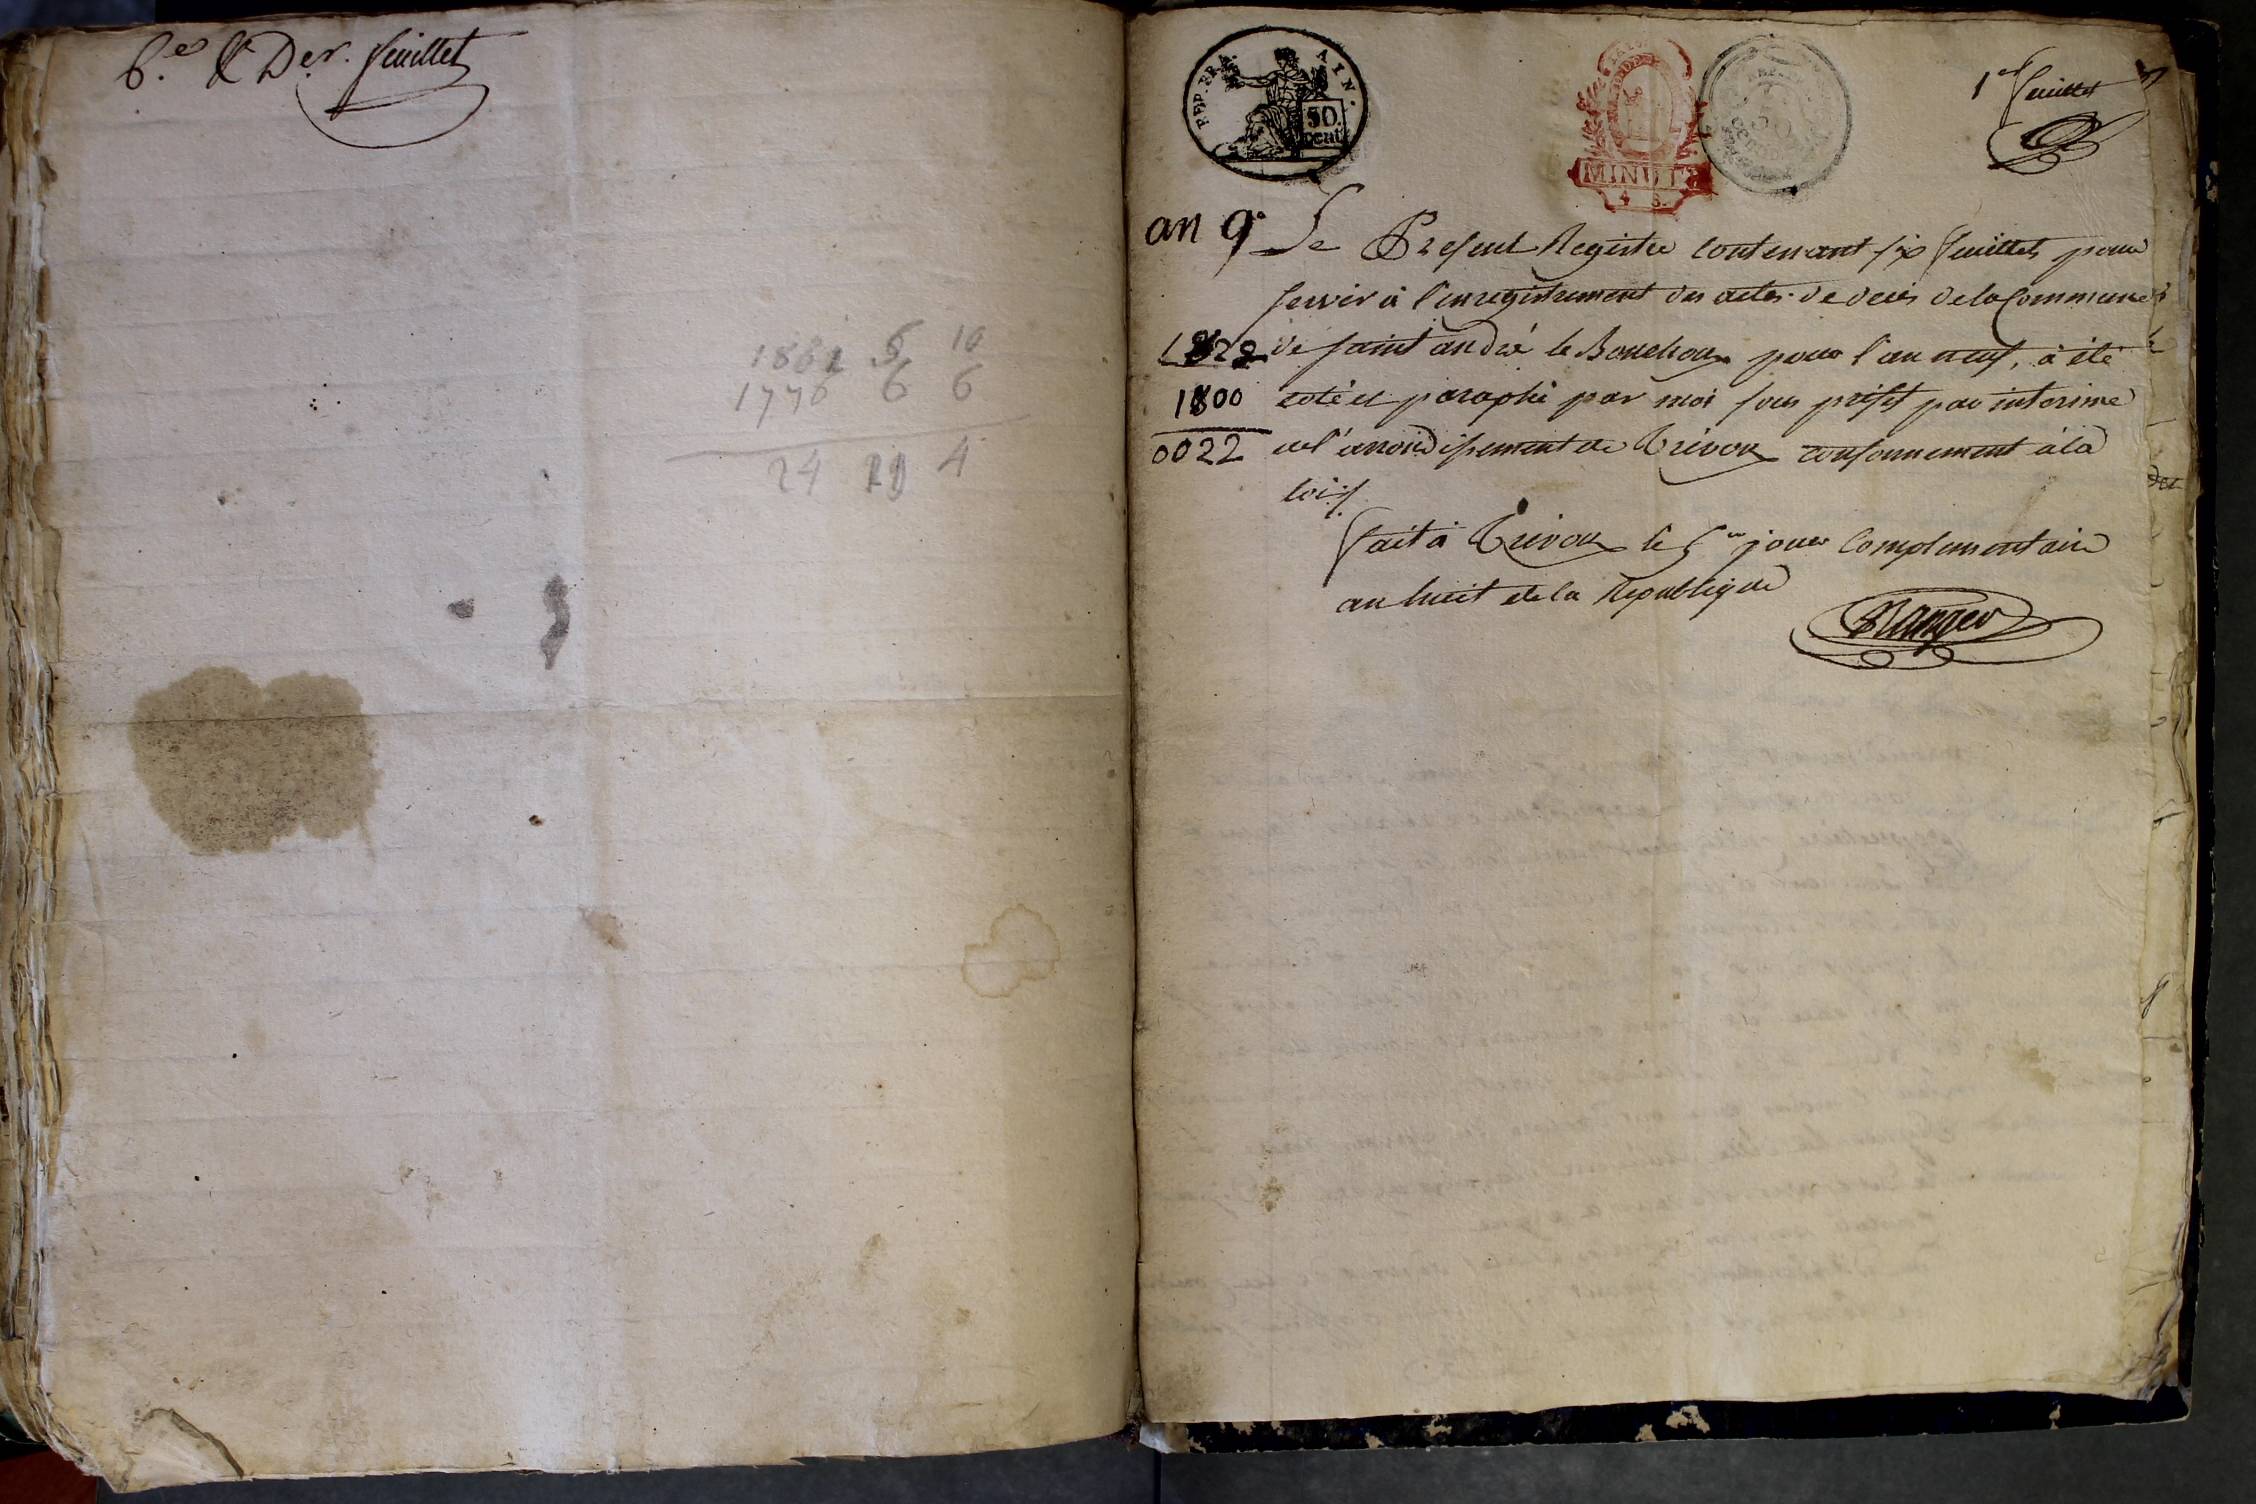 6.e & Der. feuillet
1801 5 10
1776 6 6
24 4
REP. FRA.
AIN.
50.
cent.
MINUTE
1er feuillet
an 9e
Le Present Registre contenant six feuillets pour
servir à l'enregistrement des actes de decès de la Commune
de saint andré le Bouchoux pour l'an neuf, à été
coté et paraphé par moi sous prefet par interime
de l'arrondissement de Trevoux conformement à la
loi ./.
1822
1800
0022
fait à Trevoux le 5me jour Complementaire
an huit de la Republique